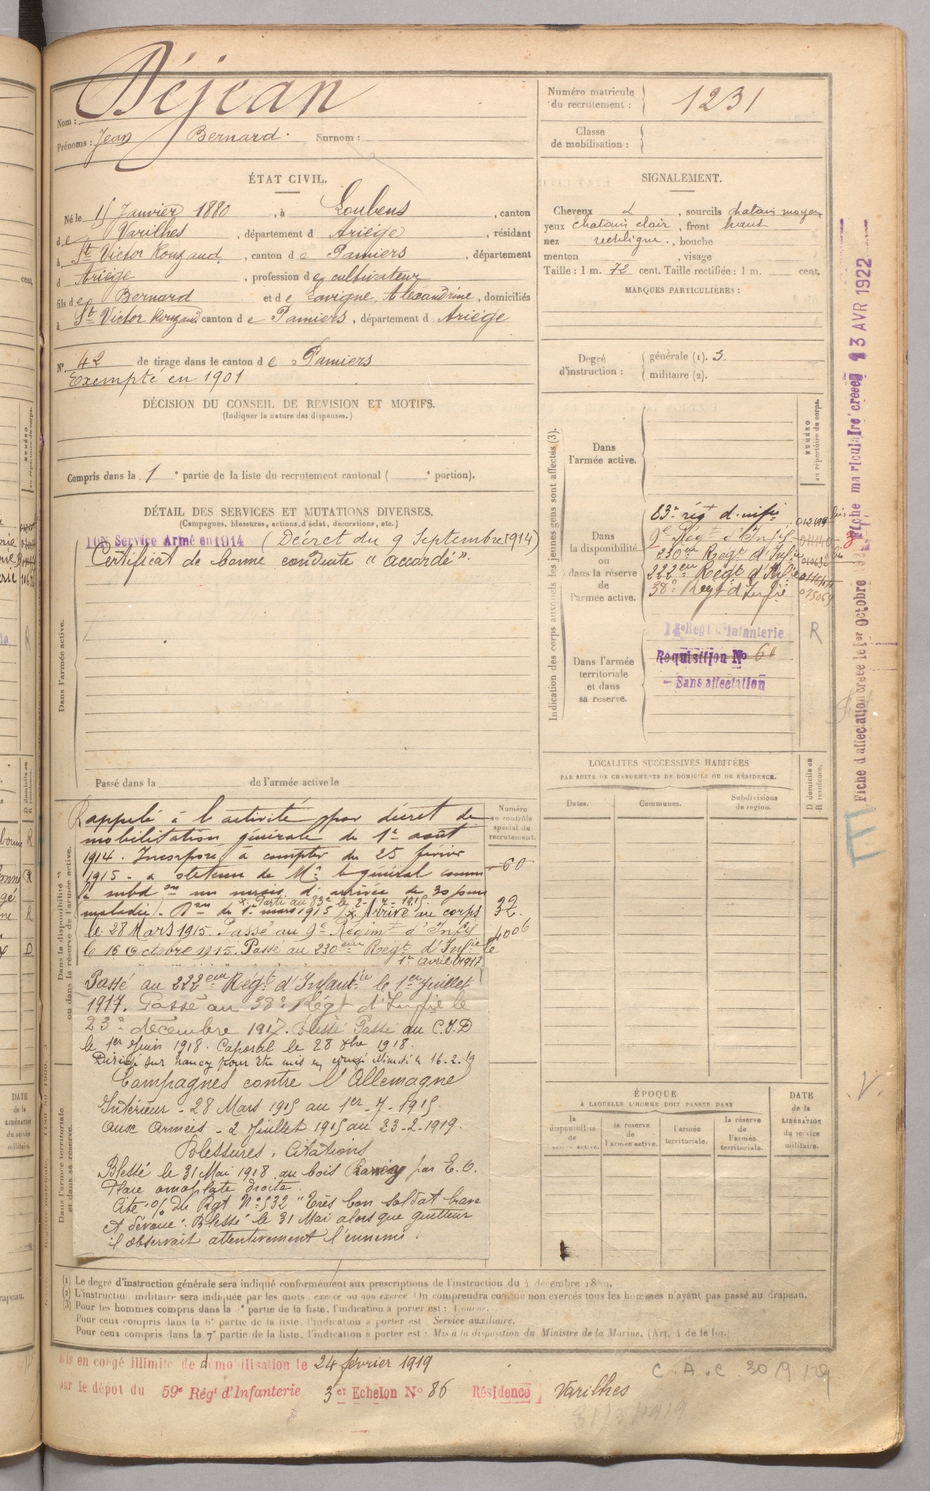 Déjean
Nom :
Prénoms : Jean Bernard. Surnom :
ÉTAT CIVIL.
Né le 15 Janvier 1880, à Loubens, canton
de Varilhes, département d Ariège, résidant
à St Victor Rouzaud, canton de Pamiers, département
d Ariège, profession de cultivateur
fils de Bernard et de Lavigne, Alexandrine, domiciliés
à St Victor Rouzaud canton de Pamiers, département d Ariège
N° 42 de tirage dans le canton de Pamiers
Exempté en 1901
DÉCISION DU CONSEIL DE REVISION ET MOTIFS.
(Indiquer la nature des dispenses.)
Compris dans la 1 e partie de la liste du recrutement cantonal ( e portion).
DÉTAIL DES SERVICES ET MUTATIONS DIVERSES.
(Campagnes, blessures, actions d'éclat, décorations, etc.)
Service Armé en 1914 (Décret du 9 Septembre 1914)
Certificat de bonne conduite "accordé".
Dans l'armée active.
Passé dans la de l'armée active le
Rappelé à l'activité par décret de
mobilisation générale du 1er août
1914. Incorporé à compter du 25 février
1915. a obtenu de Mr le général comm
subd un sursis d'arrivée de 30 jours
maladie. 1er mars 1915 (x Arrivé au corps
x Parti au 83e le 2-7-1915.
le 28 Mars 1915. Passé au 9e Régimt d'Infie
le 16 Octobre 1915. Passé au 230ème Regt d'Infie le
1er avril 1917
Passé au 222ème Régt d'Infantie le 1er Juillet
1917. Passé au 38e Régt d'Infie le
23 décembre 1917. Passé au C.I.D
le 1er Juin 1918. Caporal le 28 8bre 1918.
Dirigé sur Nancy pour être mis en congé illimité le 16.2.19
Campagnes contre l'Allemagne
Intérieur - 28 Mars 1915 au 1er-7-1915
aux Armées - 2 Juillet 1915 au 23-2-1919.
Blessures, Citations
Blessé le 31 Mai 1918 au bois par E.O.
Plaie omoplate droite.
Cité o/ du Rgt N° 532 "Très bon soldat brave
et dévoué. Blessé le 31 Mai alors que guetteur
il observait attentivement l'ennemi.
Numéro
au contrôle
spécial du
recrutement.
60
32
4006
Numéro matricule
du recrutement : 1231
Classe
de mobilisation :
SIGNALEMENT.
Cheveux d, sourcils chatain moyen
yeux chatain clair, front haut
nez rectiligne, bouche
menton, visage
Taille : 1 m. 72 cent. Taille rectifiée : 1 m. cent.
MARQUES PARTICULIÈRES :
Degré
d'instruction :
générale (1). 3.
militaire (2).
Indication des corps auxquels les jeunes gens sont affectés (3).
NUMÉRO
au répertoire du corps.
Dans
l'armée active.
Dans
la disponibilité
ou
dans la réserve
de
l'armée active.
83e régt d'infie
9e Régt d'Infie
230ème Regt d'Infie
222ème Régt d'Infie
38e Regt d'Infie
Dans l'armée
territoriale
et dans
sa réserve.
14e Régt d'Infanterie
Réquisition N° 60
- Sans affectation
R
LOCALITÉS SUCCESSIVES HABITÉES
PAR SUITE DE CHANGEMENTS DE DOMICILE OU DE RÉSIDENCE.
Dates.
Communes.
Subdivisions
de région.
D domicile ou
R résidence.
ÉPOQUE
À LAQUELLE L'HOMME DOIT PASSER DANS
la
disponibilité
de
active.
la réserve
de
l'armée active.
l'armée
territoriale.
la réserve
de
l'armée
territoriale.
DATE
de la
LIBÉRATION
du service
militaire.
(1) Le degré d'instruction générale sera indiqué conformément aux prescriptions de l'instruction du 4 décembre 1889.
(2) L'instruction militaire sera indiquée par les mots : exercé ou non exercé. On comprendra comme non exercés tous les hommes n'ayant pas passé au drapeau.
(3) Pour les hommes compris dans la partie de la liste, l'indication à porter est :
Pour ceux compris dans la 6e partie de la liste, l'indication à porter est : Service auxiliaire.
Pour ceux compris dans la 7e partie de la liste, l'indication à porter est : Mis à la disposition du Ministre de la Marine. (Art. 4 de la loi.)
Mis en congé illimité de démobilisation le 24 février 1919
par le dépôt du 59e Régt d'Infanterie 3er Echelon N° 86 Résidence Varilhes
C.A.C 30/9/29
Fiche d'affectation créée le 1er octobre
Fiche matriculaire créée 13 AVR 1922
E
V.